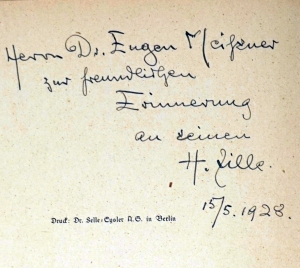 Herrn Dr. Eugen Meißner
zur freundlichen
Erinnerung
an seinen
H. Zille.
15/5.1928.
Druck: Dr. Selle-Eysler A.G. in Berlin